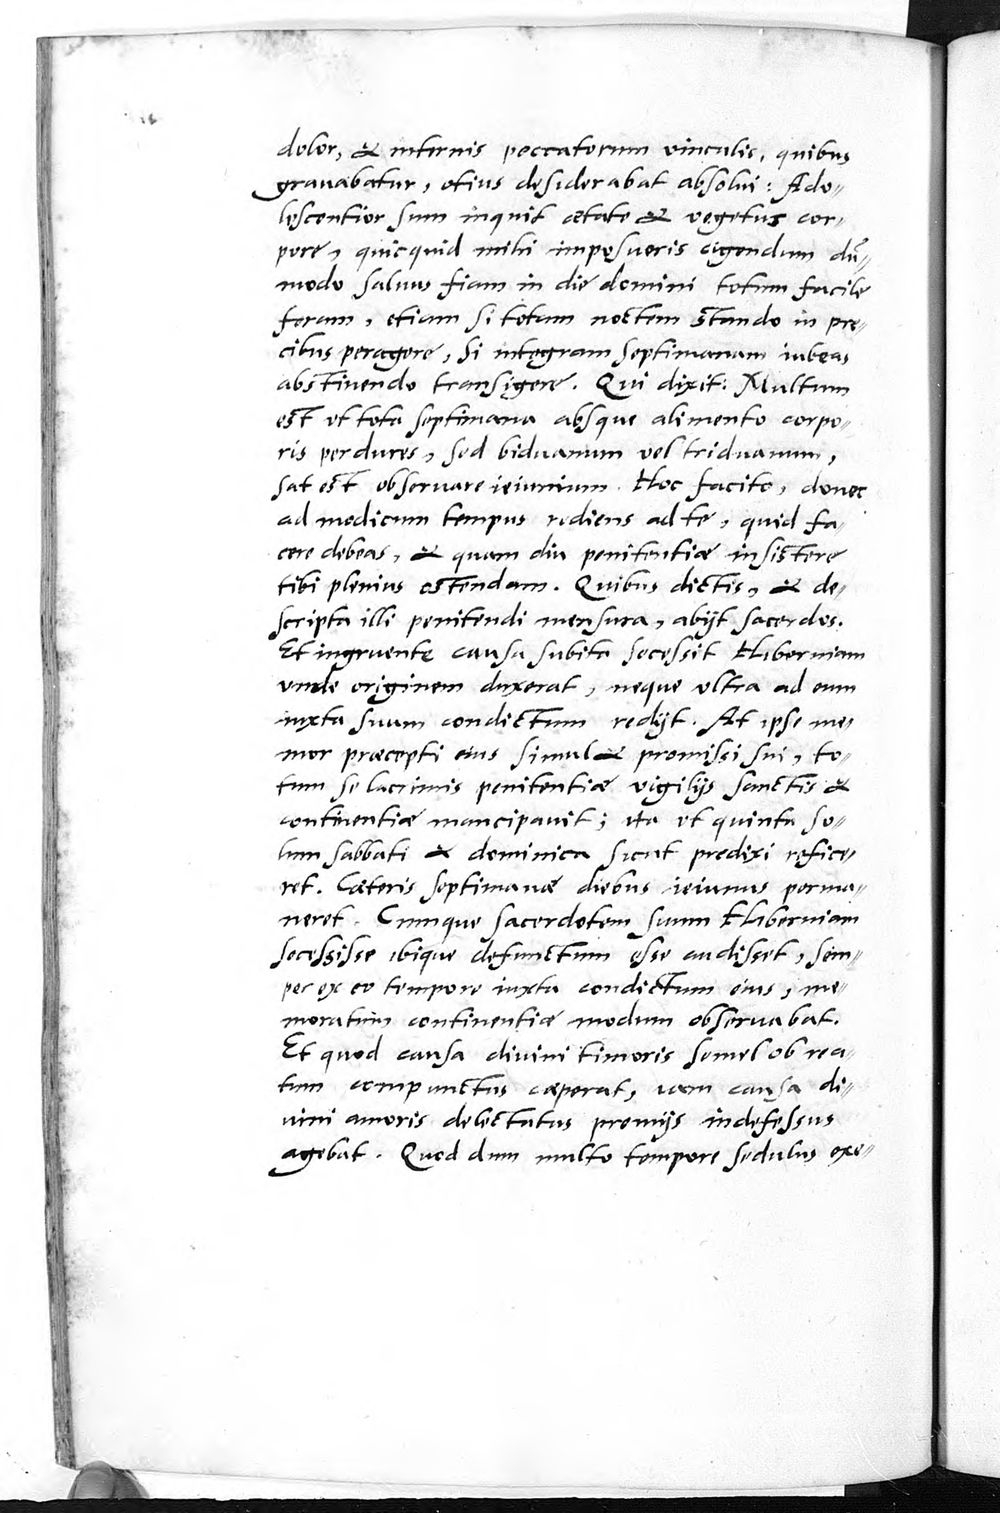 dolor, & internis peccatorum vinculis, quibus
grauabatur, otius desiderabat absolui: Ado-
lescentior sum inquit ætate & vegetus cor-
pore, quicquid mihi imposueris agendum dū-
modo saluus fiam in die domini totum facile
feram, etiam si totam noctem stando in pre-
cibus peragere, si integram septimanam iubeas
abstinendo transigere. Qui dixit: Multum
est vt tota septimana absque alimento corpo-
ris perdures, sed biduanum vel triduanum,
sat est obseruare ieiunium. Hoc facito, donec
ad modicum tempus rediens ad te, quid fa-
cere debeas, & quam diu penitentiæ insistere
tibi plenius ostendam. Quibus dictis, & de-
scripta illi penitendi mensura, abijt sacerdos.
Et ingruente causa subita secessit Hiberniam
vnde originem duxerat, neque vltra ad eum
iuxta suum condictum redijt. At ipse me-
mor præcepti eius simul & promissi sui, to-
tum se lacrimis penitentiæ vigilijs sanctis &
continentiæ mancipauit; ita vt quinta so-
lum sabbati & dominica sicut predixi refice-
ret. Cæteris septimanæ diebus ieiunus perma-
neret. Cumque sacerdotem suum Hiberniam
secessisse ibique defunctum esse audisset, sem-
per ex eo tempore iuxta condictum eius, me-
moratum continentiæ modum obseruabat.
Et quod causa diuini timoris semel ob rea-
tum compunctus cæperat, iam causa di-
uini amoris delectatus premijs indefessus
agebat. Quod dum multo tempore sedulus exe-